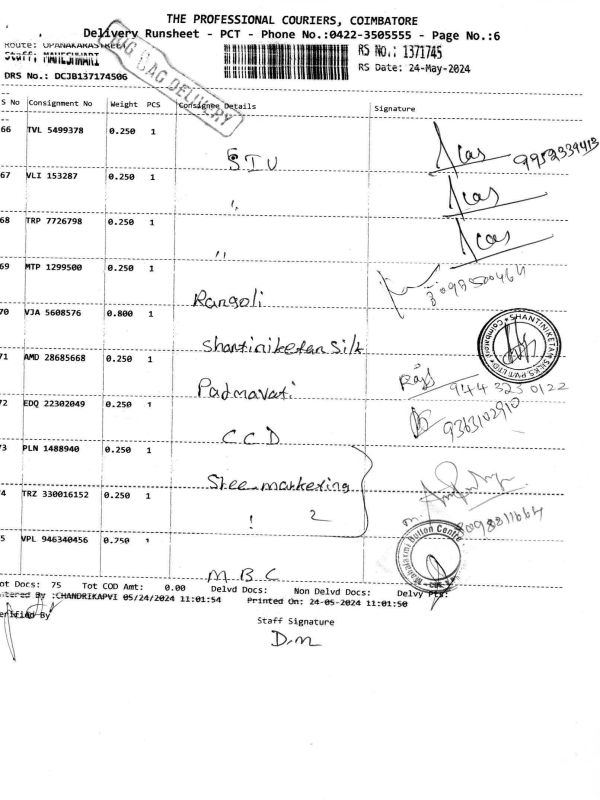 THE PROFESSIONAL COURIERS, COIMBATORE
Delivery Runsheet - PCT - Phone No.:0422-3505555 - Page No.:6
Route: OPANAKARASTREET
Staff: MAHESHWARI
RS No.: 1371745
DRS No.: DCJB137174506
RS Date: 24-May-2024
BAG DELIVERY
S No Consignment No Weight PCS Consignee Details Signature
66 TVL 5499378 0.250 1 STU 9952339413
67 VLI 153287 0.250 1 "
68 TRP 7726798 0.250 1 "
69 MTP 1299500 0.250 1 Rangoli
70 VJA 5608576 0.800 1 Shantiniketan Silk
SHANTINIKETAN SILKS PVT LTD Coimbatore
71 AMD 28685668 0.250 1 Padmavati 944 323 0122
72 EDQ 22302049 0.250 1 CCD 9363102910
73 PLN 1488940 0.250 1 Sree marketing
74 TRZ 330016152 0.250 1 ! 2
75 VPL 946340456 0.750 1 M B C
Mahalaxmi Button Centre
Tot Docs: 75 Tot COD Amt: 0.00 Delvd Docs: Non Delvd Docs: Delvy Pts:
Entered By :CHANDRIKAPVI 05/24/2024 11:01:54 Printed On: 24-05-2024 11:01:50
Verified By
Staff Signature
D.m